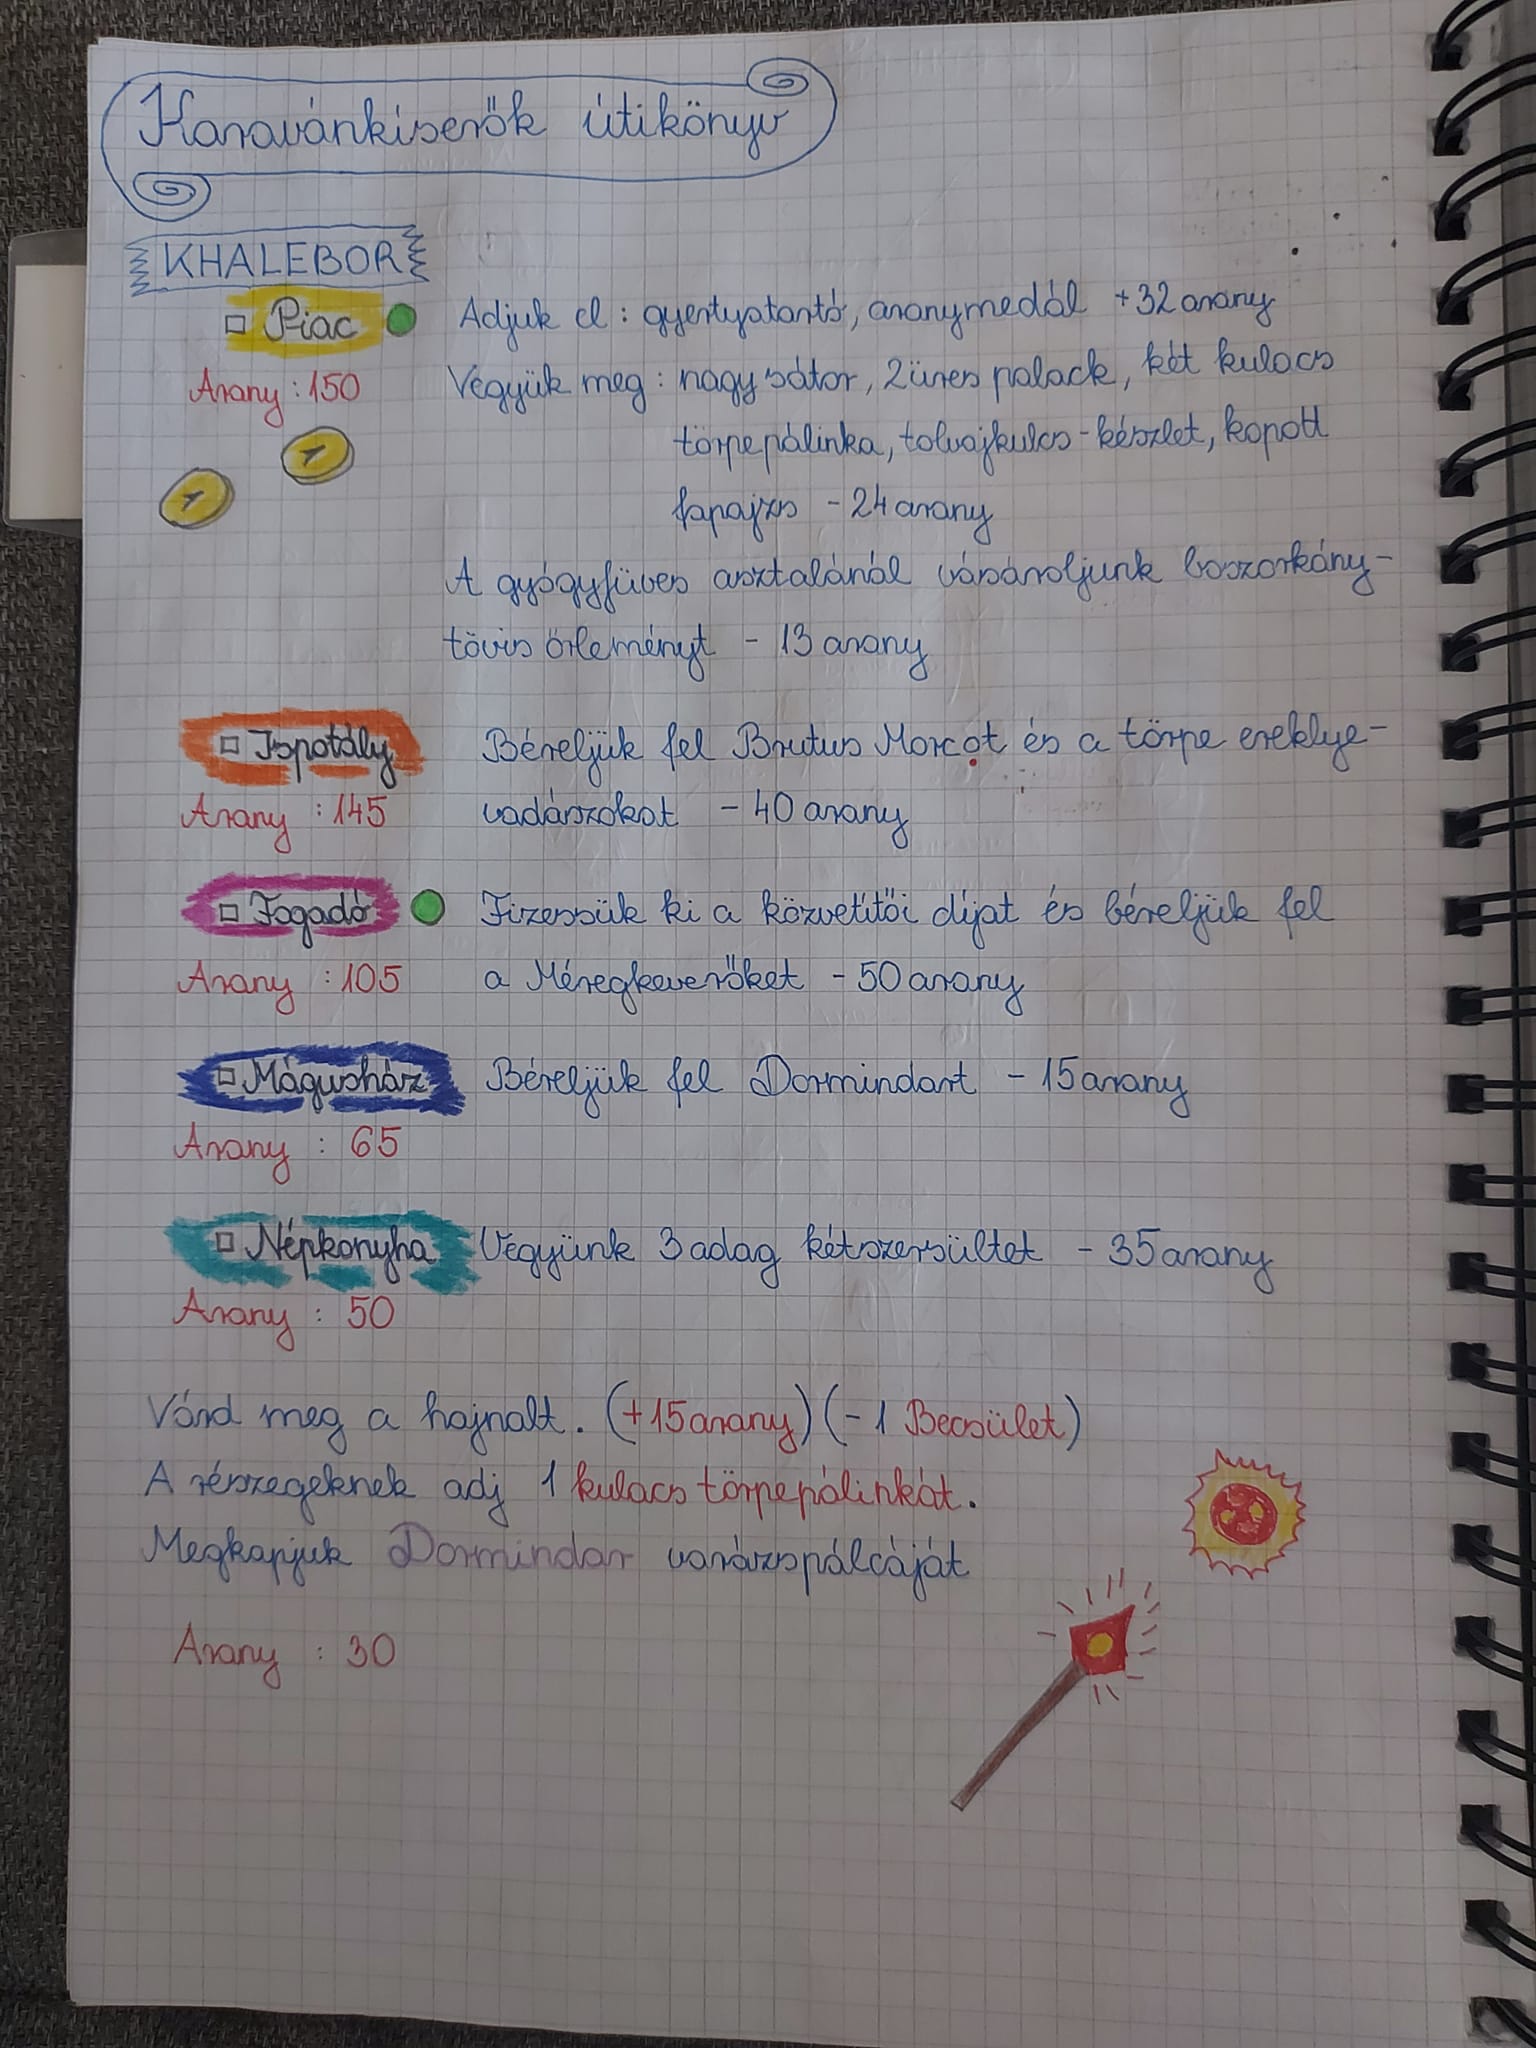 Karavánkisérők útikönyv
KHALEBOR
□ Piac Adjuk el: gyertyatartó, aranymedál +32 arany
Arany: 150 Vegyük meg: nagy sátor, 2 üres palack, két kulacs
törpepálinka, tolvajkulcs-készlet, kopott
fapajzs - 24 arany
A gyógyfüves asztalánál vásároljunk boszorkány-
tövis őrleményt - 13 arany
□ Ispotály Béreljük fel Brutus Morcot és a törpe ereklye-
Arany: 145 vadászokat - 40 arany
□ Fogadó Fizessük ki a közvetítői díjat és béreljük fel
Arany: 105 a Méregkeverőket - 50 arany
□ Mágusház Béreljük fel Dormindart - 15 arany
Arany: 65
□ Népkonyha Vegyünk 3 adag kétszersültet - 35 arany
Arany: 50
Várd meg a hajnalt. (+15 arany) (-1 Becsület)
A részegeknek adj 1 kulacs törpepálinkát.
Megkapjuk Dormindar varázspálcáját
Arany: 30